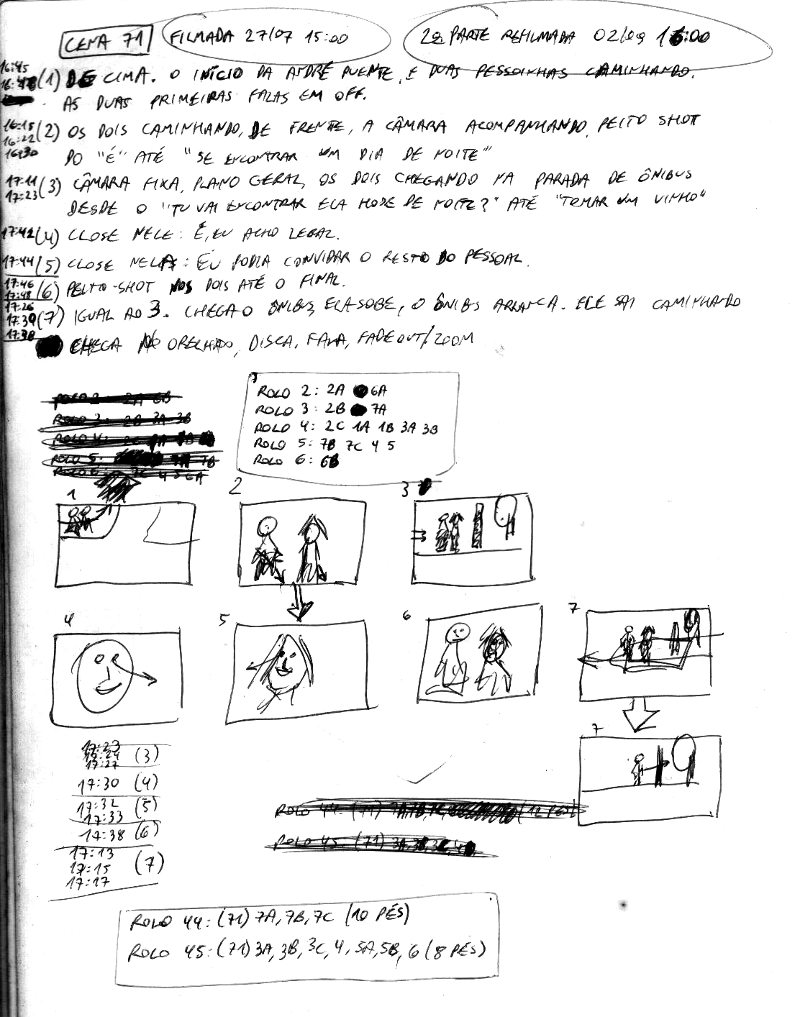 CENA 71 FILMADA 27/07 15:00 2ª PARTE REFILMADA 02/09 16:00
16:45
(1) DE CIMA. O INÍCIO DA ANDRÉ PUENTE, E DUAS PESSOINHAS CAMINHANDO.
AS DUAS PRIMEIRAS FALAS EM OFF.
16:15 (2) OS DOIS CAMINHANDO, DE FRENTE, A CÂMARA ACOMPANHANDO, PEITO SHOT
16:22
16:30 DO "É" ATÉ "SE ENCONTRAR UM DIA DE NOITE"
17:11 (3) CÂMARA FIXA, PLANO GERAL, OS DOIS CHEGANDO NA PARADA DE ÔNIBUS
17:23 DESDE O "TU VAI ENCONTRAR ELA HOJE DE NOITE?" ATÉ "TOMAR UM VINHO"
17:42 (4) CLOSE NELE: É, EU ACHO LEGAL.
17:44 (5) CLOSE NELA: EU PODIA CONVIDAR O RESTO DO PESSOAL.
17:46 (6) PEITO-SHOT NOS DOIS ATÉ O FINAL.
17:48
17:26 (7) IGUAL AO 3. CHEGA O ÔNIBUS, ELA SOBE, O ÔNIBUS ARRANCA. ELE SAI CAMINHANDO
17:39
17:38 CHEGA NO ORELHÃO, DISCA, FALA, FADE OUT/ZOOM
ROLO 2: 2A 6A
ROLO 3: 2B 7A
ROLO 4: 2C 1A 1B 3A 3B
ROLO 5: 7B 7C 4 5
ROLO 6: 6B
1 2 3
4 5 6 7
7
17:27 (3)
17:30 (4)
17:32 (5)
17:33
17:38 (6)
17:13
17:15 (7)
17:17
ROLO 44: (71) 7A, 7B, 7C (10 PÉS)
ROLO 45: (71) 3A, 3B, 3C, 4, 5A, 5B, 6 (8 PÉS)